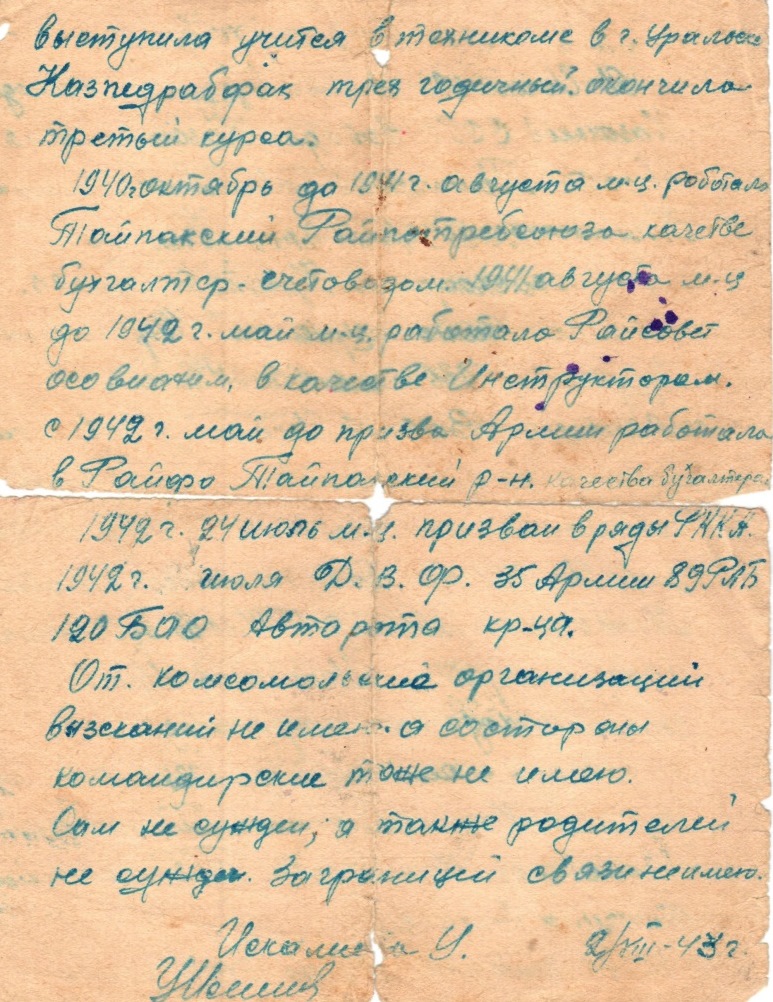 выступила учится в техникоме в г. Уральск
Казпедрабфак трех годичный. окончила
третий курса.
1940г. октябрь до 1941 г. августа м-ц. работала
Тайпакский Райпотребсоюза качестве
бухгалтер - счетоводом. 1941 августа м-ц
до 1942 г. май м-ц. работала Райсовет
осовиахим, в качестве Инструктором.
с 1942 г. май до призва Армии работала
в Райфо Тайпакский р-н. качества бухгалтера
1942 г. 24 июль м-ц. призван в ряды РККА.
1942 г. июля Д. В. Ф. 35 Армии 89
120 БАО Авторота кр-ца.
От. комсомольский организаций
взысканий не имею. а со стороны
командирские тоже не имею.
Сам не сужден, а также родителей
не сужден. Заграницей связи не имею.
У.
VIII-43 г.